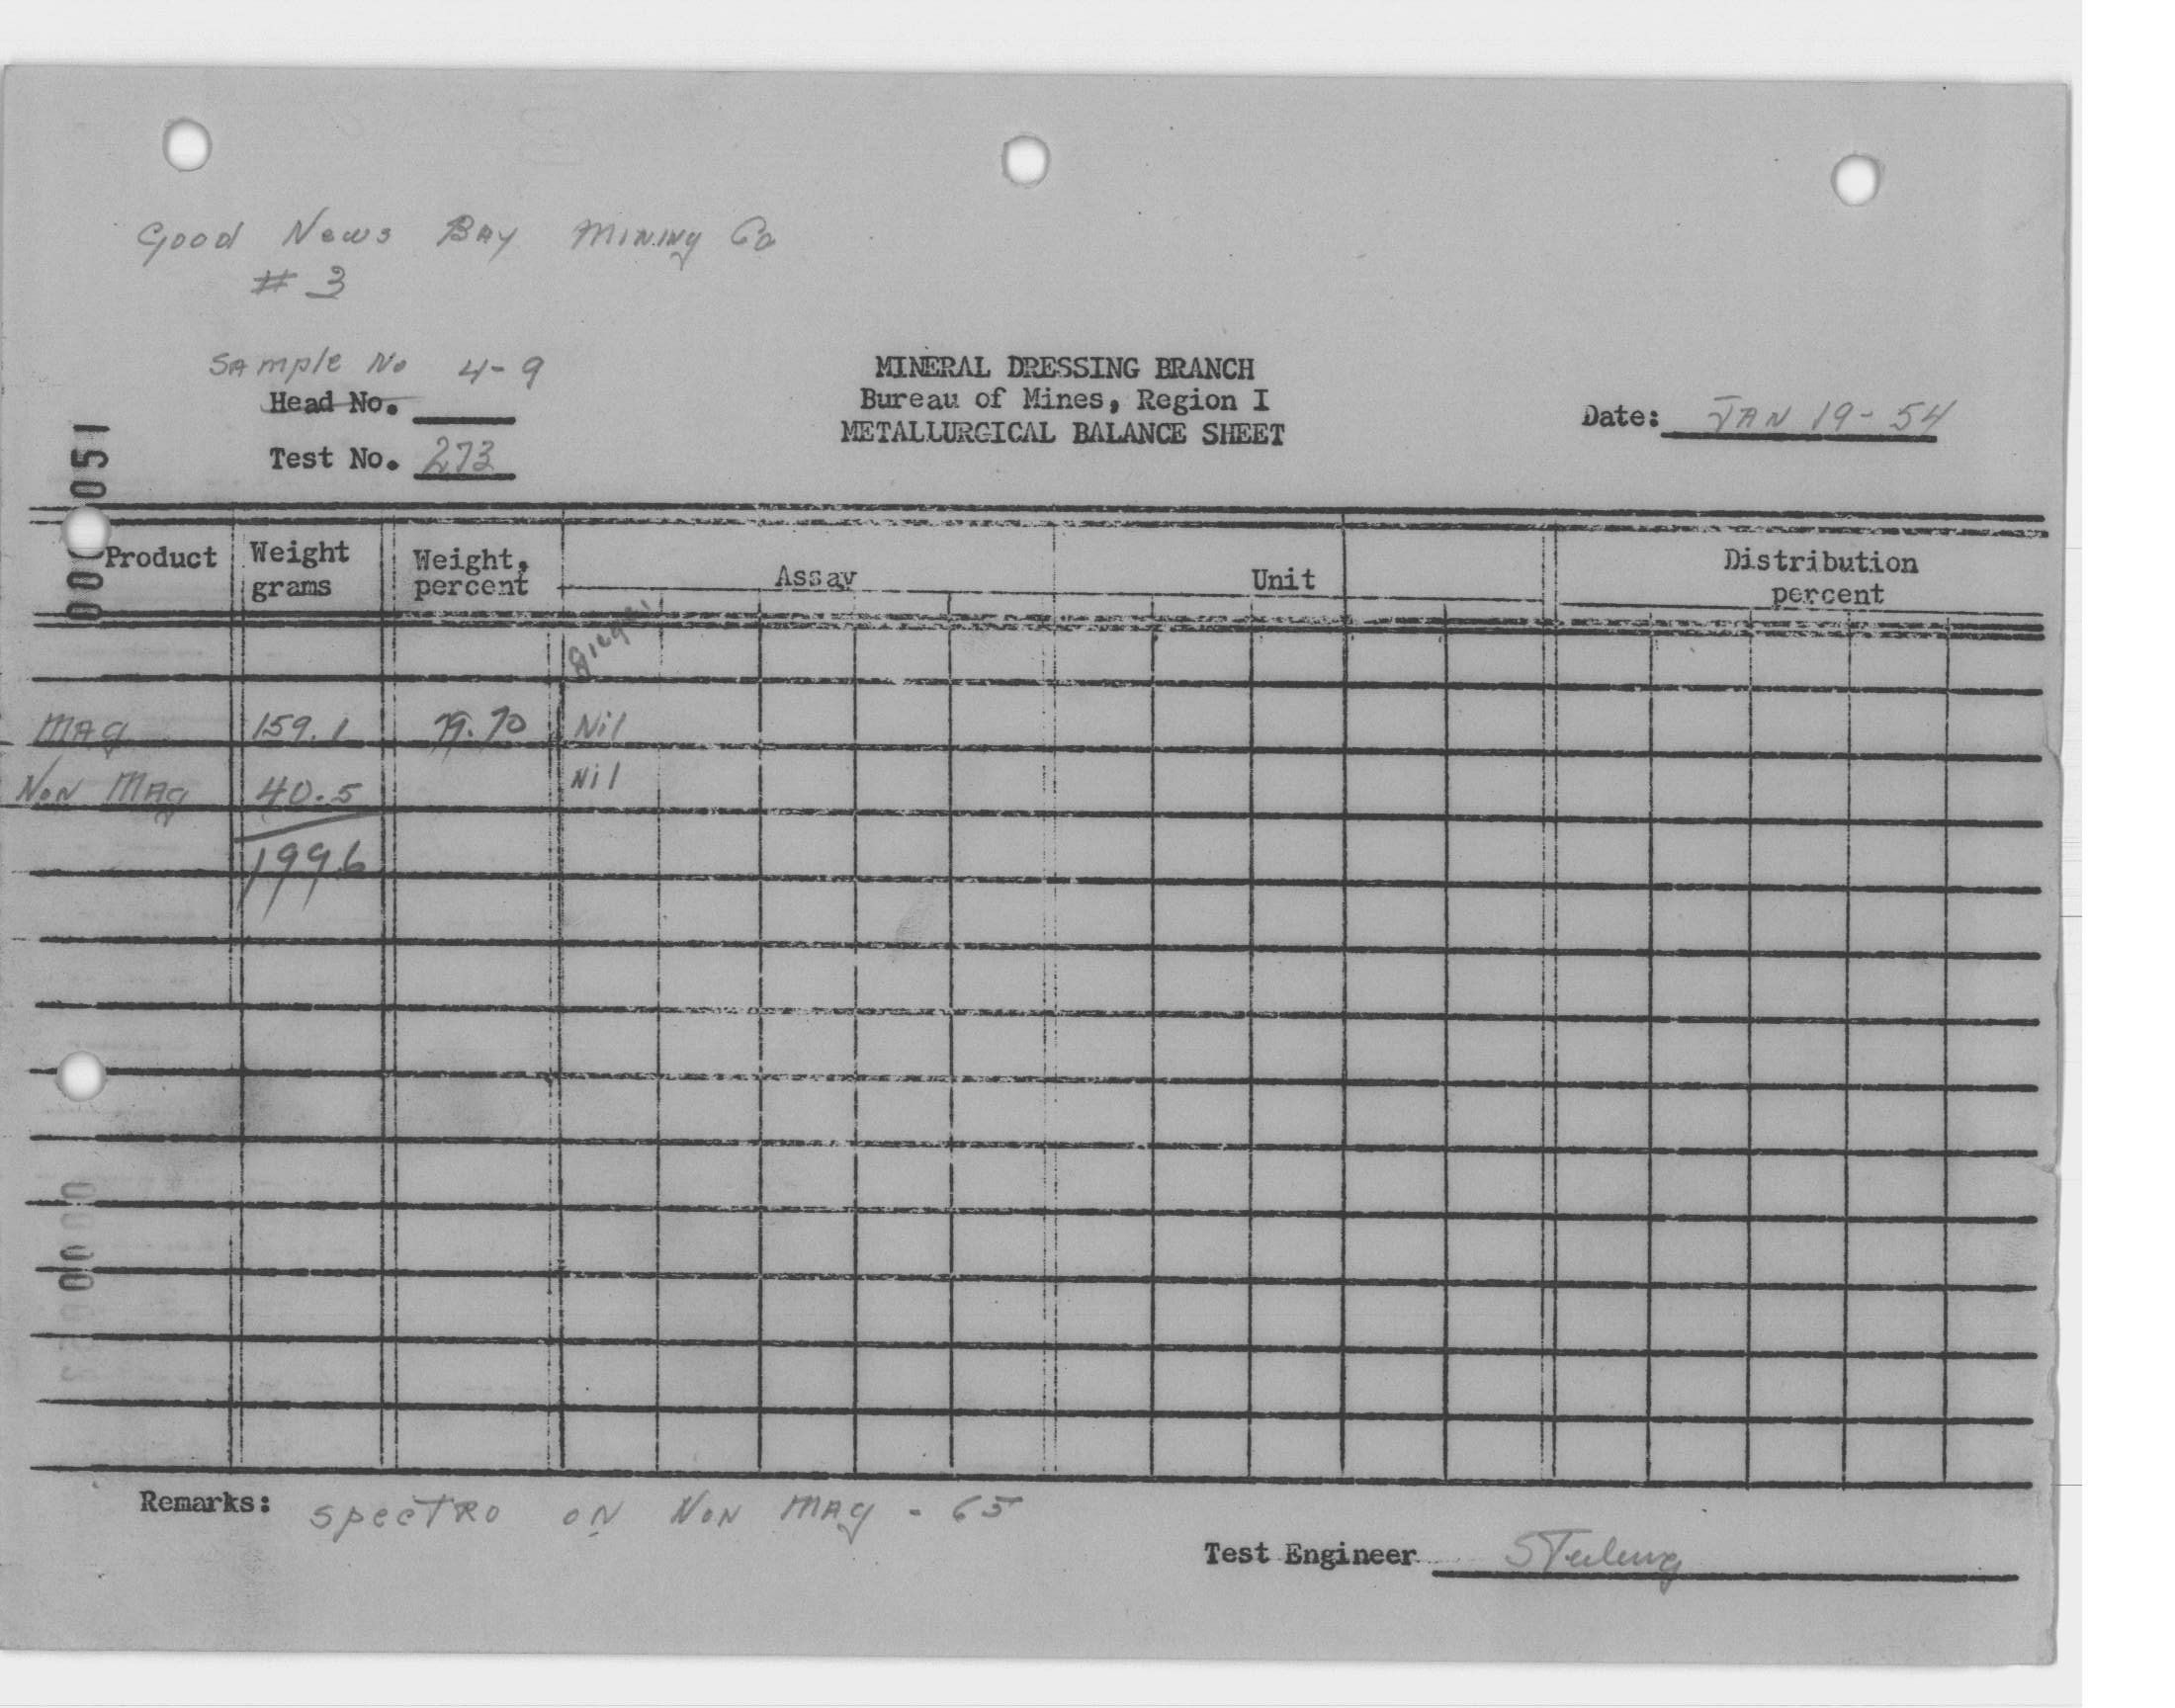 Good News Bay Mining Co
# 3
Sample No 4-9
Head No.
Test No. 273
MINERAL DRESSING BRANCH
Bureau of Mines, Region I
METALLURGICAL BALANCE SHEET
Date: JAN 19-54
Product
Weight
grams
Weight,
percent
Assay
Unit
Distribution
percent
Mag 159.1 79.70 Nil
Non Mag 40.5 Nil
199.6
Remarks: Spectro on Non Mag - 65
Test Engineer